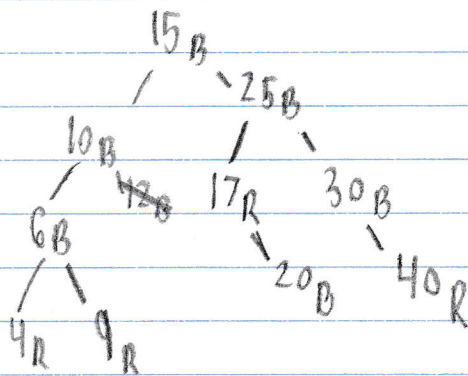 15B
25B
10B
12B 17R 30B
6B
20B 40R
4R 9R